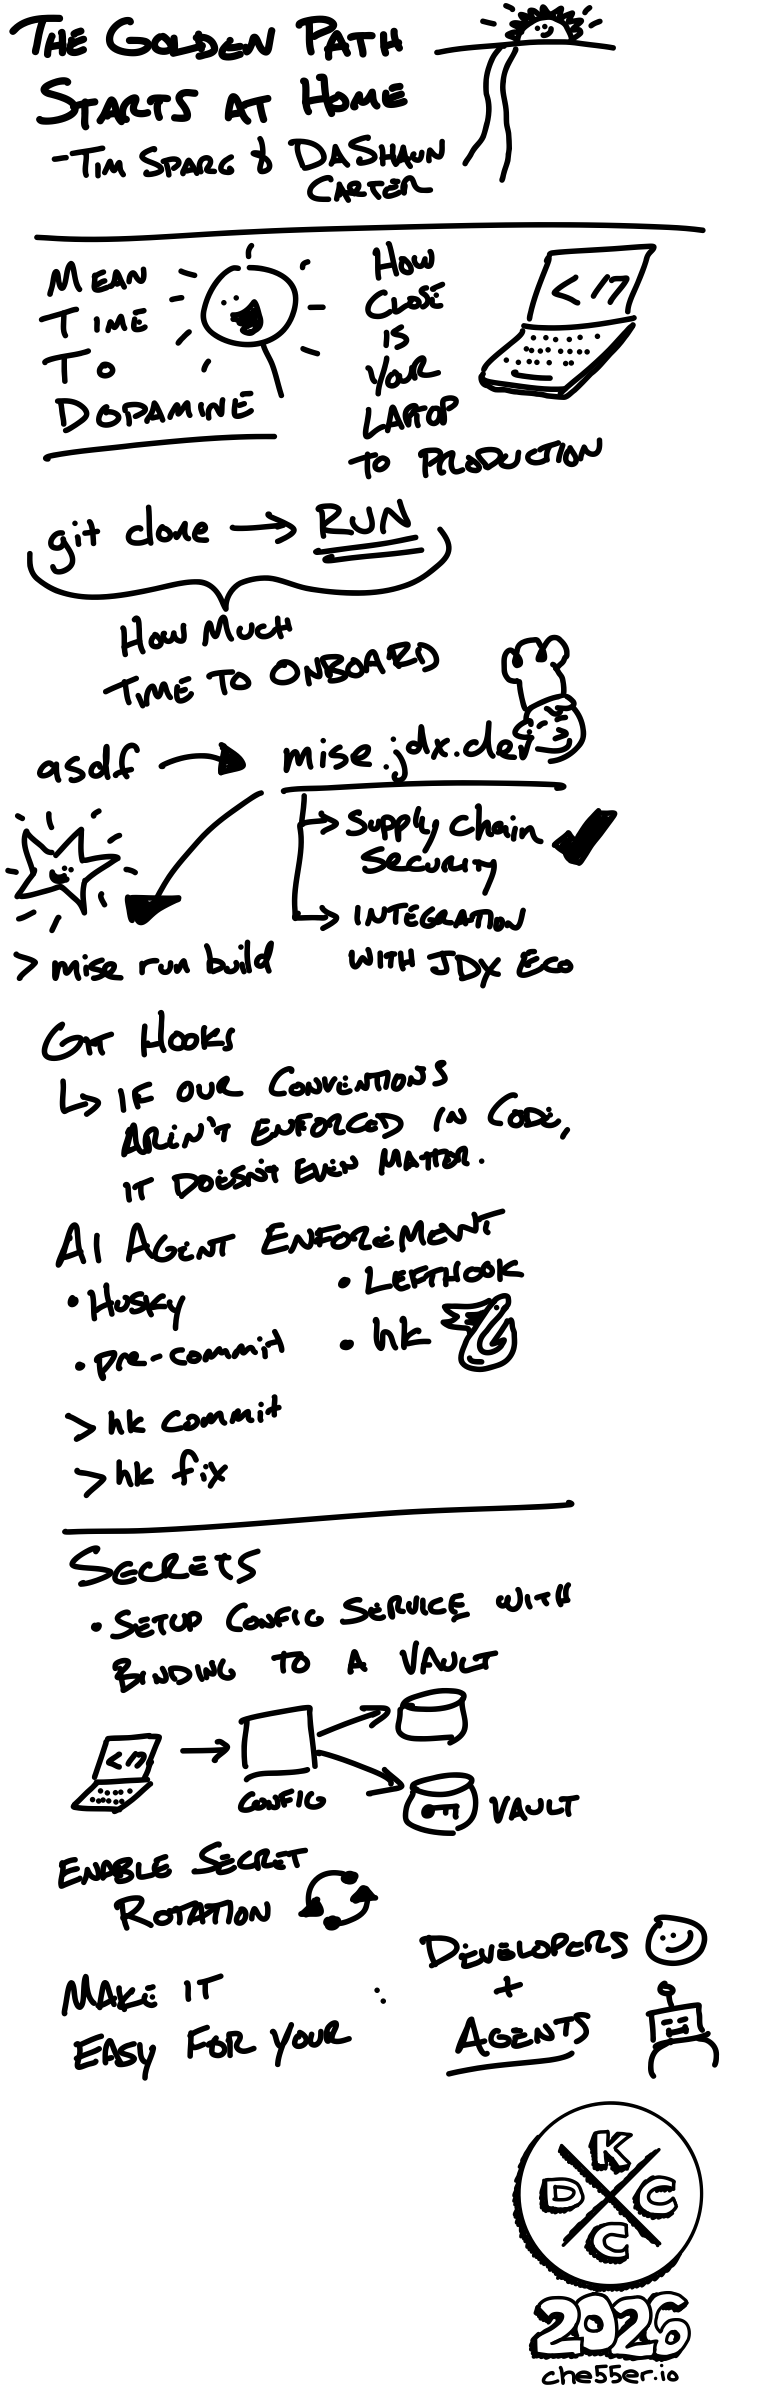 THE GOLDEN PATH
STARTS AT HOME
- TIM SPARG & DASHAUN
CARTER
MEAN
TIME
TO
DOPAMINE
HOW
CLOSE
IS
YOUR
LAPTOP
TO PRODUCTION
</>
git clone → RUN
HOW MUCH
TIME TO ONBOARD
asdf → mise.jdx.dev
→ Supply Chain
SECURITY
→ INTEGRATION
WITH JDX ECO
> mise run build
GIT HOOKS
↳ IF OUR CONVENTIONS
AREN'T ENFORCED IN CODE,
IT DOESN'T EVEN MATTER.
AI AGENT ENFOREMENT
• HUSKY
• pre-commit
• LEFTHOOK
• hk
> hk commit
> hk fix
SECRETS
• SETUP CONFIG SERVICE WITH
BINDING TO A VAULT
</>
CONFIG
VAULT
ENABLE SECRET
ROTATION
MAKE IT
EASY FOR YOUR :
DEVELOPERS
+
AGENTS
K
D C
C
2026
che55er.io